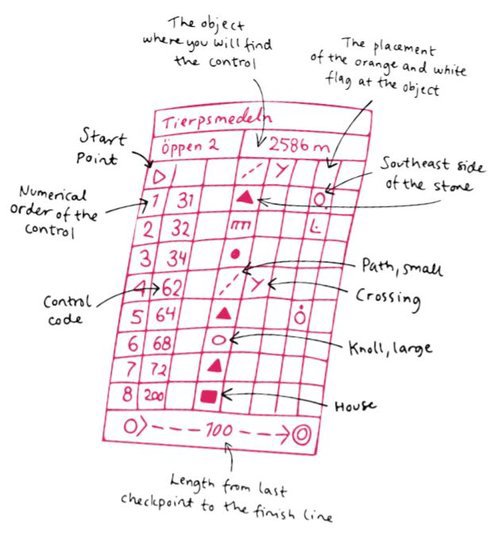 The object
where you will find
the control
The placement
of the orange and white
flag at the object
Tierpsmedeln
Öppen 2 2586 m
Start
Point
Southeast side
of the stone
Numerical
order of the
control
1 31
2 32
3 34
4 62
5 64
6 68
7 72
8 200
Path, small
Crossing
Control
code
Knoll, large
House
100
Length from last
checkpoint to the finish line